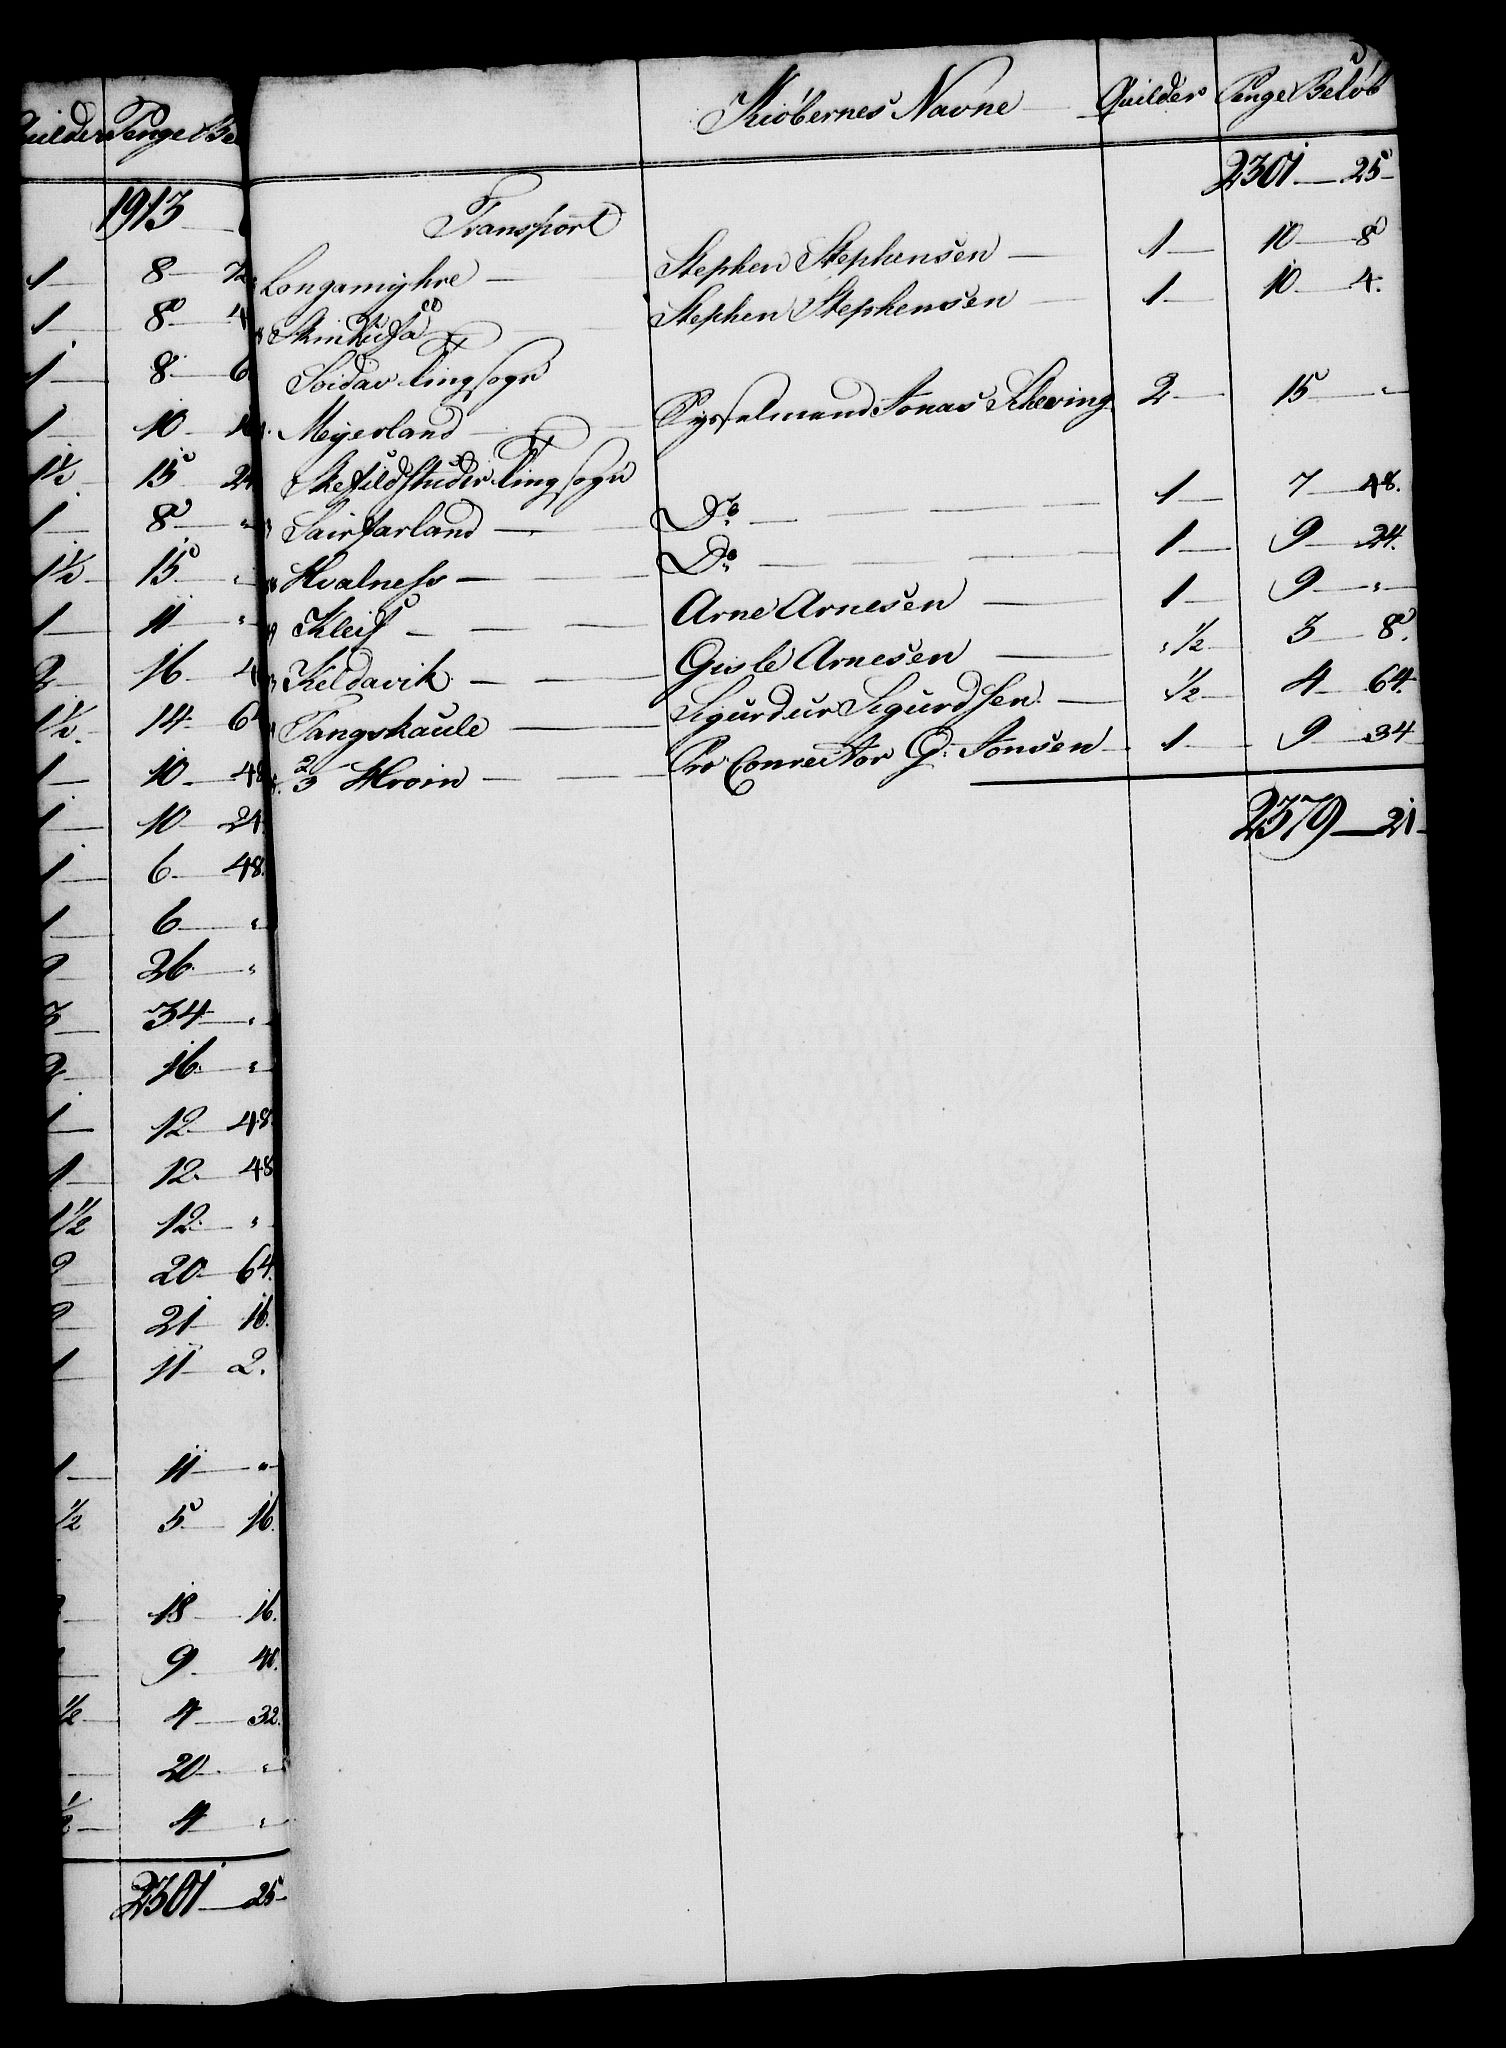 Quilder Penge Be
1913
1 8 72
1 8 4
1 8 6
1 10 16
1½ 15 24
1 8 "
1½ 15 "
1 11 "
2 16 4
1½ 14 6
1 10 48
1 10 24
1 6 48.
1 6 "
2 26 "
3 34 "
2 16 "
1 12 48.
1 12 48
1½ 12 "
2 20 64.
2 21 16.
1 11 2.
1 11 "
½ 5 16.
18 16.
9 48.
½ 4 32.
20 "
½ 4 "
2301 25
Kiöbernes Navne Quilder Penge Belöb
Transport 2301 25
Longamyhre Stephen Stephensen 1 10 8
Skinthufa Stephen Stephensen 1 10 4.
Soidar Tingsogn
Meyerland Sysselmand Jonas Scheving 2 15 "
Skefildstuder Tingsogn
Sairfarland Do 1 7 48.
Hvalness Do 1 9 24.
Kleif Arne Arnesen 1 9 "
Keldavik Gisle Arnesen ½ 3 8.
Tangskaule Sigurdur Sigurdsen ½ 4 64.
2/3 Hroin Pro Conrector G: Jonsen 1 9 34
2379 21